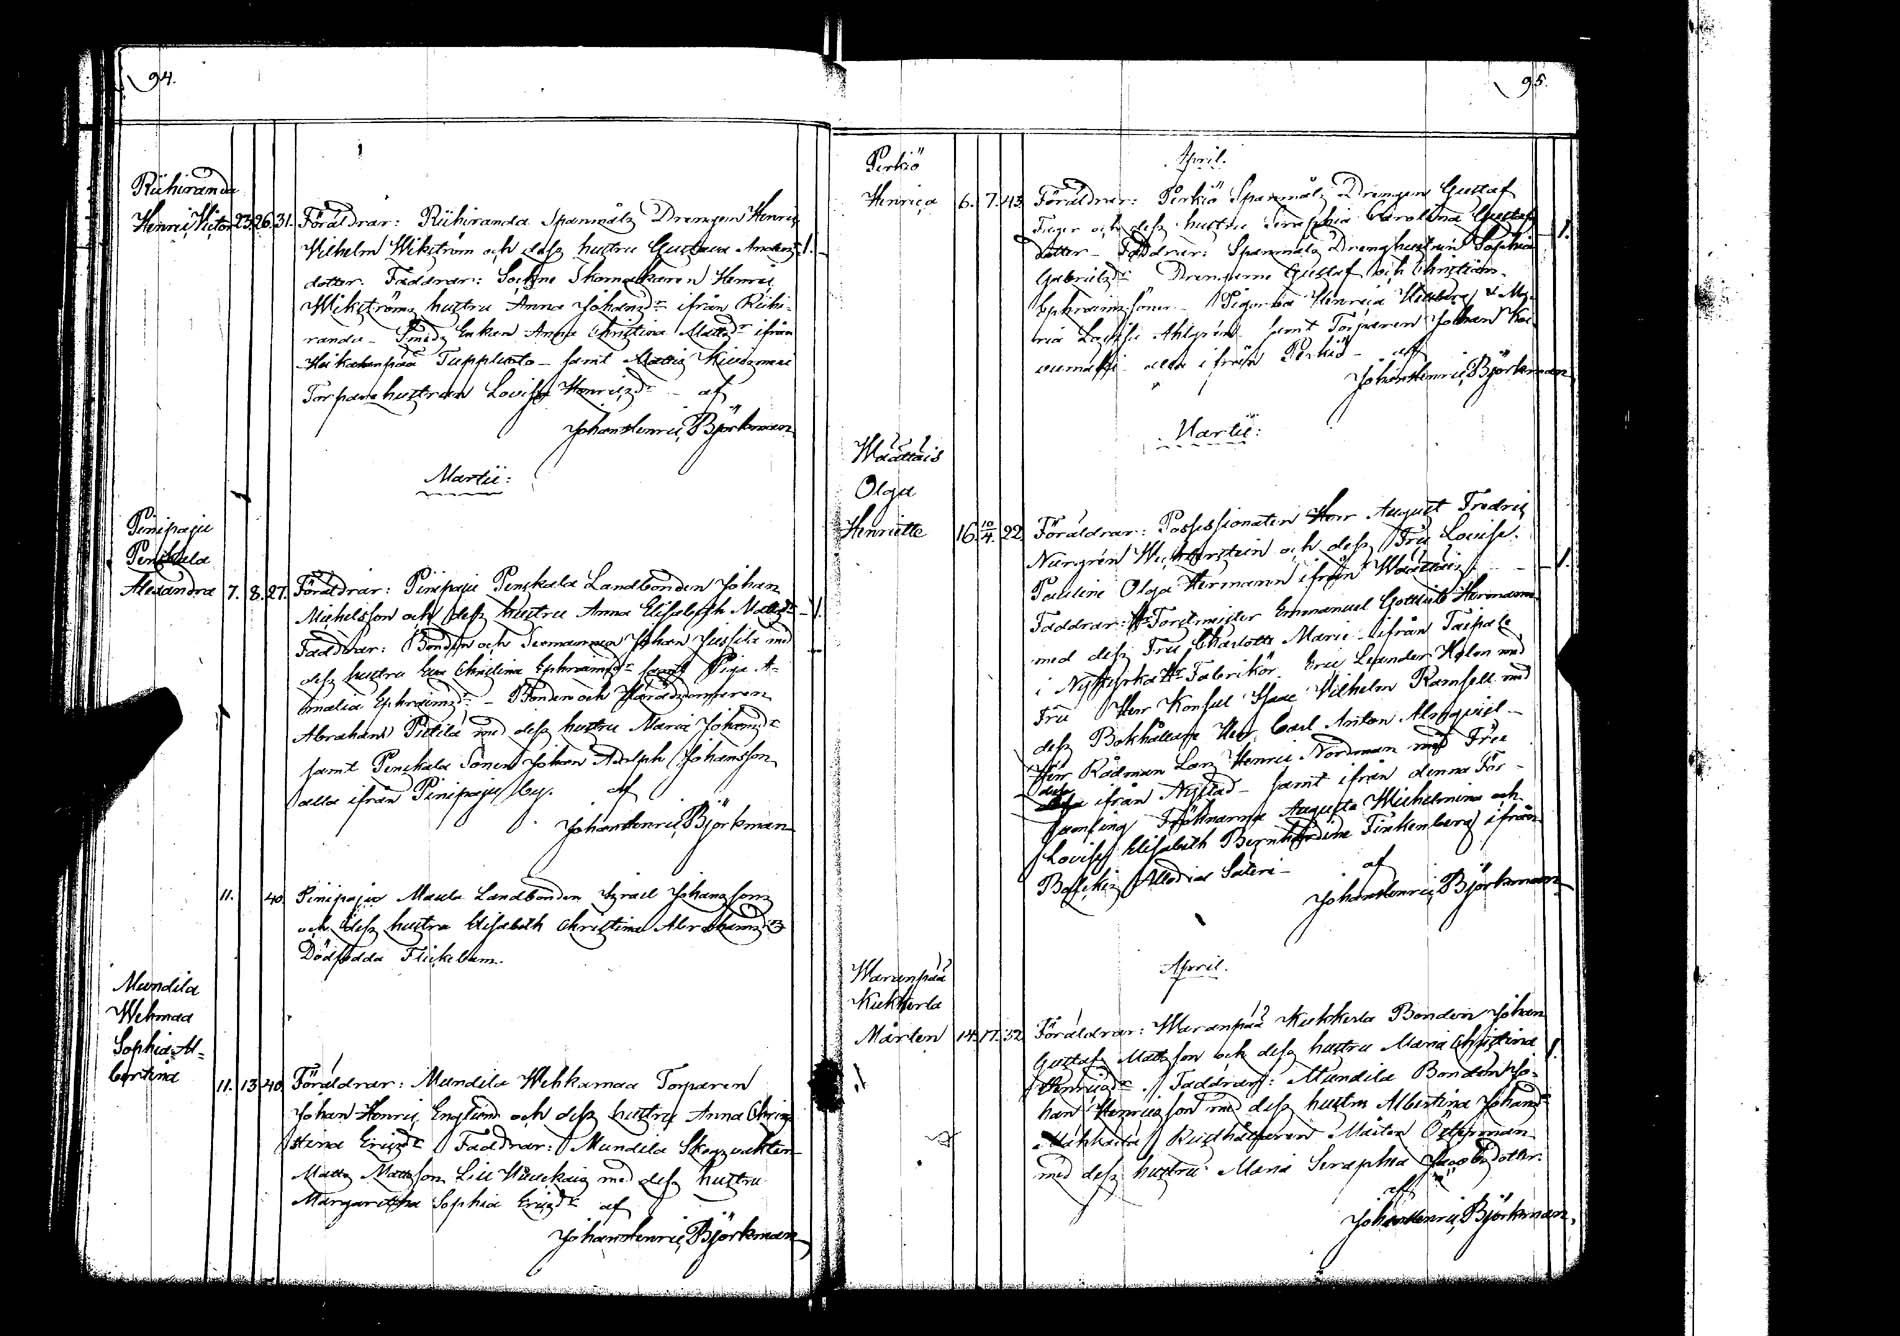 94.
Riihiranda
Henric Victor 23. 26. 31. Föräldrar: Riihiranda Spanmåls Drengen Henric
Wilhelm Wikström och dess hustru Gustava Anders- 1.
dotter. Faddrar: Sockne Skomakaren Henric
Wikströms hustru Anna Johansdr ifrån Riihi-
randa Enkan Anna Christina Mattsdr ifrån
Tuppluoto samt Mattis
Torpare hustrun Lovisa Henricsdr af
Johan Henric Björkman
Martii:
Pinipaju
Penskala
Alexandra 7. 8. 27. Föräldrar: Pinipaju Penskala Landbonden Johan
Michelsson och dess hustru Anna Elisabeth Mattsdr 1.
Faddrar: Bonden och Sexmannen Johan Jussila med
dess hustru Eva Christina Ephraimsdr samt Piga A-
malia Ephraimsdr - Bonden och Häradsdomaren
Abraham Pietilä med dess hustru Maria Johansdr
samt Penskala Sonen Johan Adolph Johansson
alla ifrån Pinipaju by. af
Johan Henric Björkman
11. 40. Pinipaju Maula Landbonden Israel Johansson
och dess hustru Elisabeth Christina Abrahamsdr
Dödfödda Flickebarn.
Mundila
Wehmaa
Sophia Al-
bertina 11. 13. 40. Föräldrar: Mundila Wehkamaa Torparen
Johan Henric Englund och dess hustru Anna Chris-
tina Ericsdr Faddrar: Mundila Skogvaktaren
Matts Mattsson Lill med dess hustru
Margaretha Sophia Ericsdr af
Johan Henric Björkman
95.
Perkiö
April.
Henrica 6. 7. 43. Föräldrar: Perkiö Spanmåls Drengen Gustaf
Fager och dess hustru Seraphia Carolina Gustafs 1.
dotter - Faddrar: Spanmåls Dreng hustrun Sophia
Gabrielsdr Drengarne Gustaf och Christian
Ephraimssöner - Pigorna Henrica & Ma-
ria Lovisa Ahlgren samt Torparen Johan
alla ifrån Perkiö - af
Johan Henric Björkman
Martii:
Waattais
Olga
Henriette 16. 10/4. 22. Föräldrar: Possessionaten Herr August Fredric
Nurgrén och dess Fru Lovisa
Pauline Olga Hermann ifrån Waattais 1.
Faddrar: Hr Forstmister Emmanuel Gottlieb Hermann
med dess Fru Charlotta Maria ifrån Taipale
i Nykyrka Hr Fabrikör Eric Leander Holm med
Fru Herr Konsul Isaac Wilhelm Ramsell med
dess Bokhållare Herr Carl Anton Almqvist -
Herr Rådman Lars Henric Nordman med Fru
ifrån Nystad - samt ifrån denna För-
samling Fröknarna Augusta Wilhelmina och
Lovisa Elisabeth Bernhardina Finkenberg ifrån
Säteri - af
Johan Henric Björkman
Waranpää
Kukkerla
April.
Mårten 14. 17. 32. Föräldrar: Waranpää Kukkerla Bonden Johan
Gustaf Mattsson och dess hustru Maria Christina 1.
Henricsdr. Faddrar: Mundila Bonden Jo-
han Henricsson med dess hustru Albertina Johansdr
Rusthållaren Mårten Österman
med dess hustru Maria Seraphia Jacobsdotter.
af
Johan Henric Björkman.